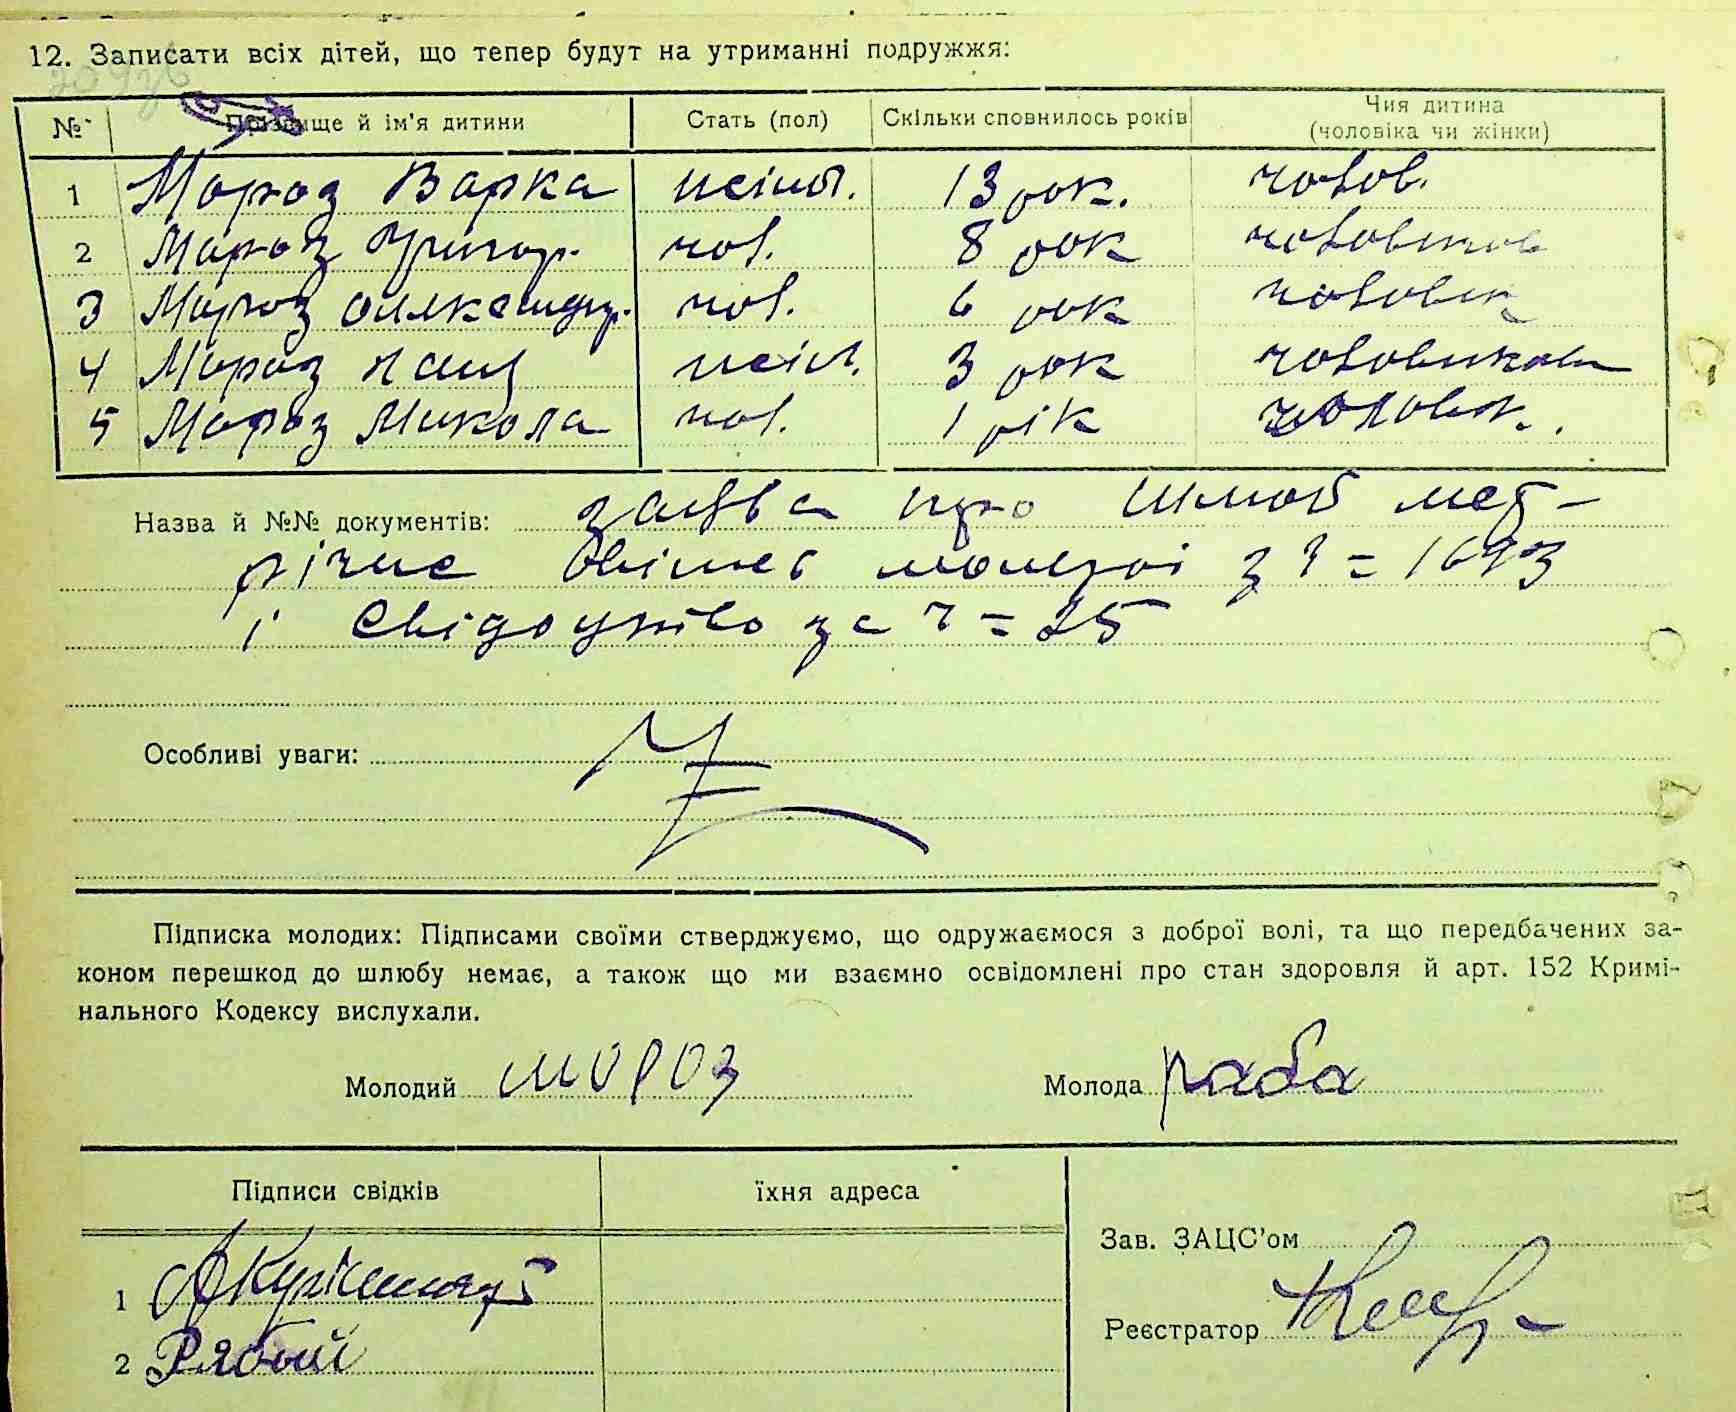 12. Записати всіх дітей, що тепер будут на утриманні подружжя:
№ Прізвище й ім'я дитини Стать (пол) Скільки сповнилось років Чия дитина
(чоловіка чи жінки)
1 Мороз Варка жіноч. 13 рок. чолов.
2 Мороз Григор. чол. 8 рок чоловіков
3 Мороз Олександр. чол. 6 рок чоловік
4 Мороз жіно. 3 рок чоловікова
5 Мороз Микола чол. 1 рік чоловік.
Назва й №№ документів: заява про шлюб мет-
річне молодої з
і свідоцтво за ч = 25
Особливі уваги:
Підписка молодих: Підписами своїми стверджуємо, що одружаємося з доброї волі, та що передбачених за-
коном перешкод до шлюбу немає, а також що ми взаємно освідомлені про стан здоровля й арт. 152 Кримі-
нального Кодексу вислухали.
Молодий Мороз Молода раба
Підписи свідків їхня адреса
Зав. ЗАЦС'ом
1
Реєстратор
2 Рябий